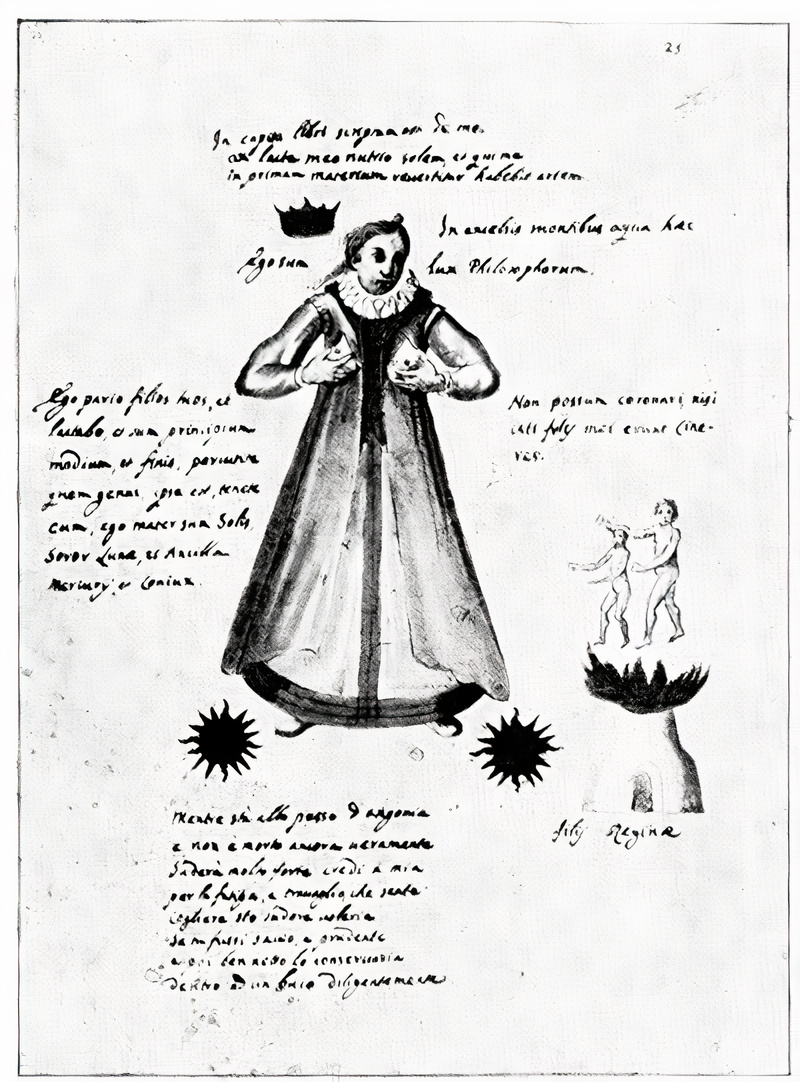 25
In capite libri scriptum est de me
ex lacte meo nutrio solem, et qui me
in primam materiam revertitur habebit artem
In excelsis montibus aqua hæc
Ego sum
lux Philosophorum.
Ego pario filios meos, et
lactabo, et sum principium
medium, et finis, pariunt
quem genui, ipsa est, tenete
eum, ego mater sum Solis,
Soror Lunæ, et Ancilla
Mercurij et Coniux.
Non possum coronari, nisi
isti filij mei erunt Cine-
res.
filij Reginæ
Mentre sta allo passo d'angonia
e non è morto ancora veramente
Suderà molto forte credi à mia
per la fatiga, e travaglio, che sente
cogliere sto sudore
se tu fussi savio, e prudente
e poi ben netto lo conserveria
dentro ad un buco diligentemente